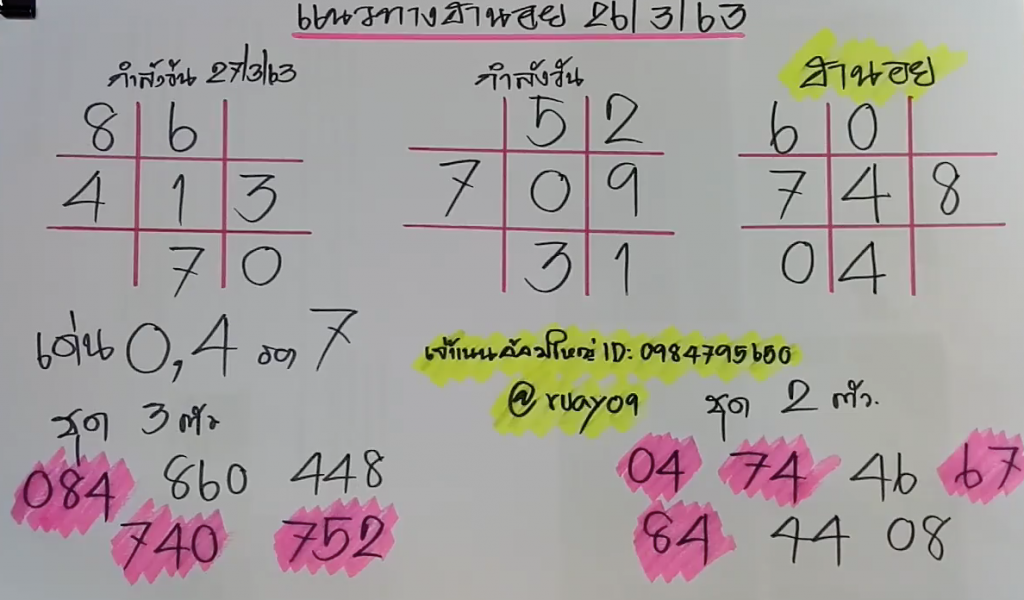 แนวทางฮานอย 26/3/63
กำลังวัน 27/3/63
8 6
4 1 3
7 0
กำลังวัน
5 2
7 0 9
3 1
ฮานอย
6 0
7 4 8
0 4
เด่น 0,4 รอง 7
ID: 0984795650
@ruay09
ชุด 3 ตัว
084 860 448
740 752
ชุด 2 ตัว.
04 74 46 67
84 44 08